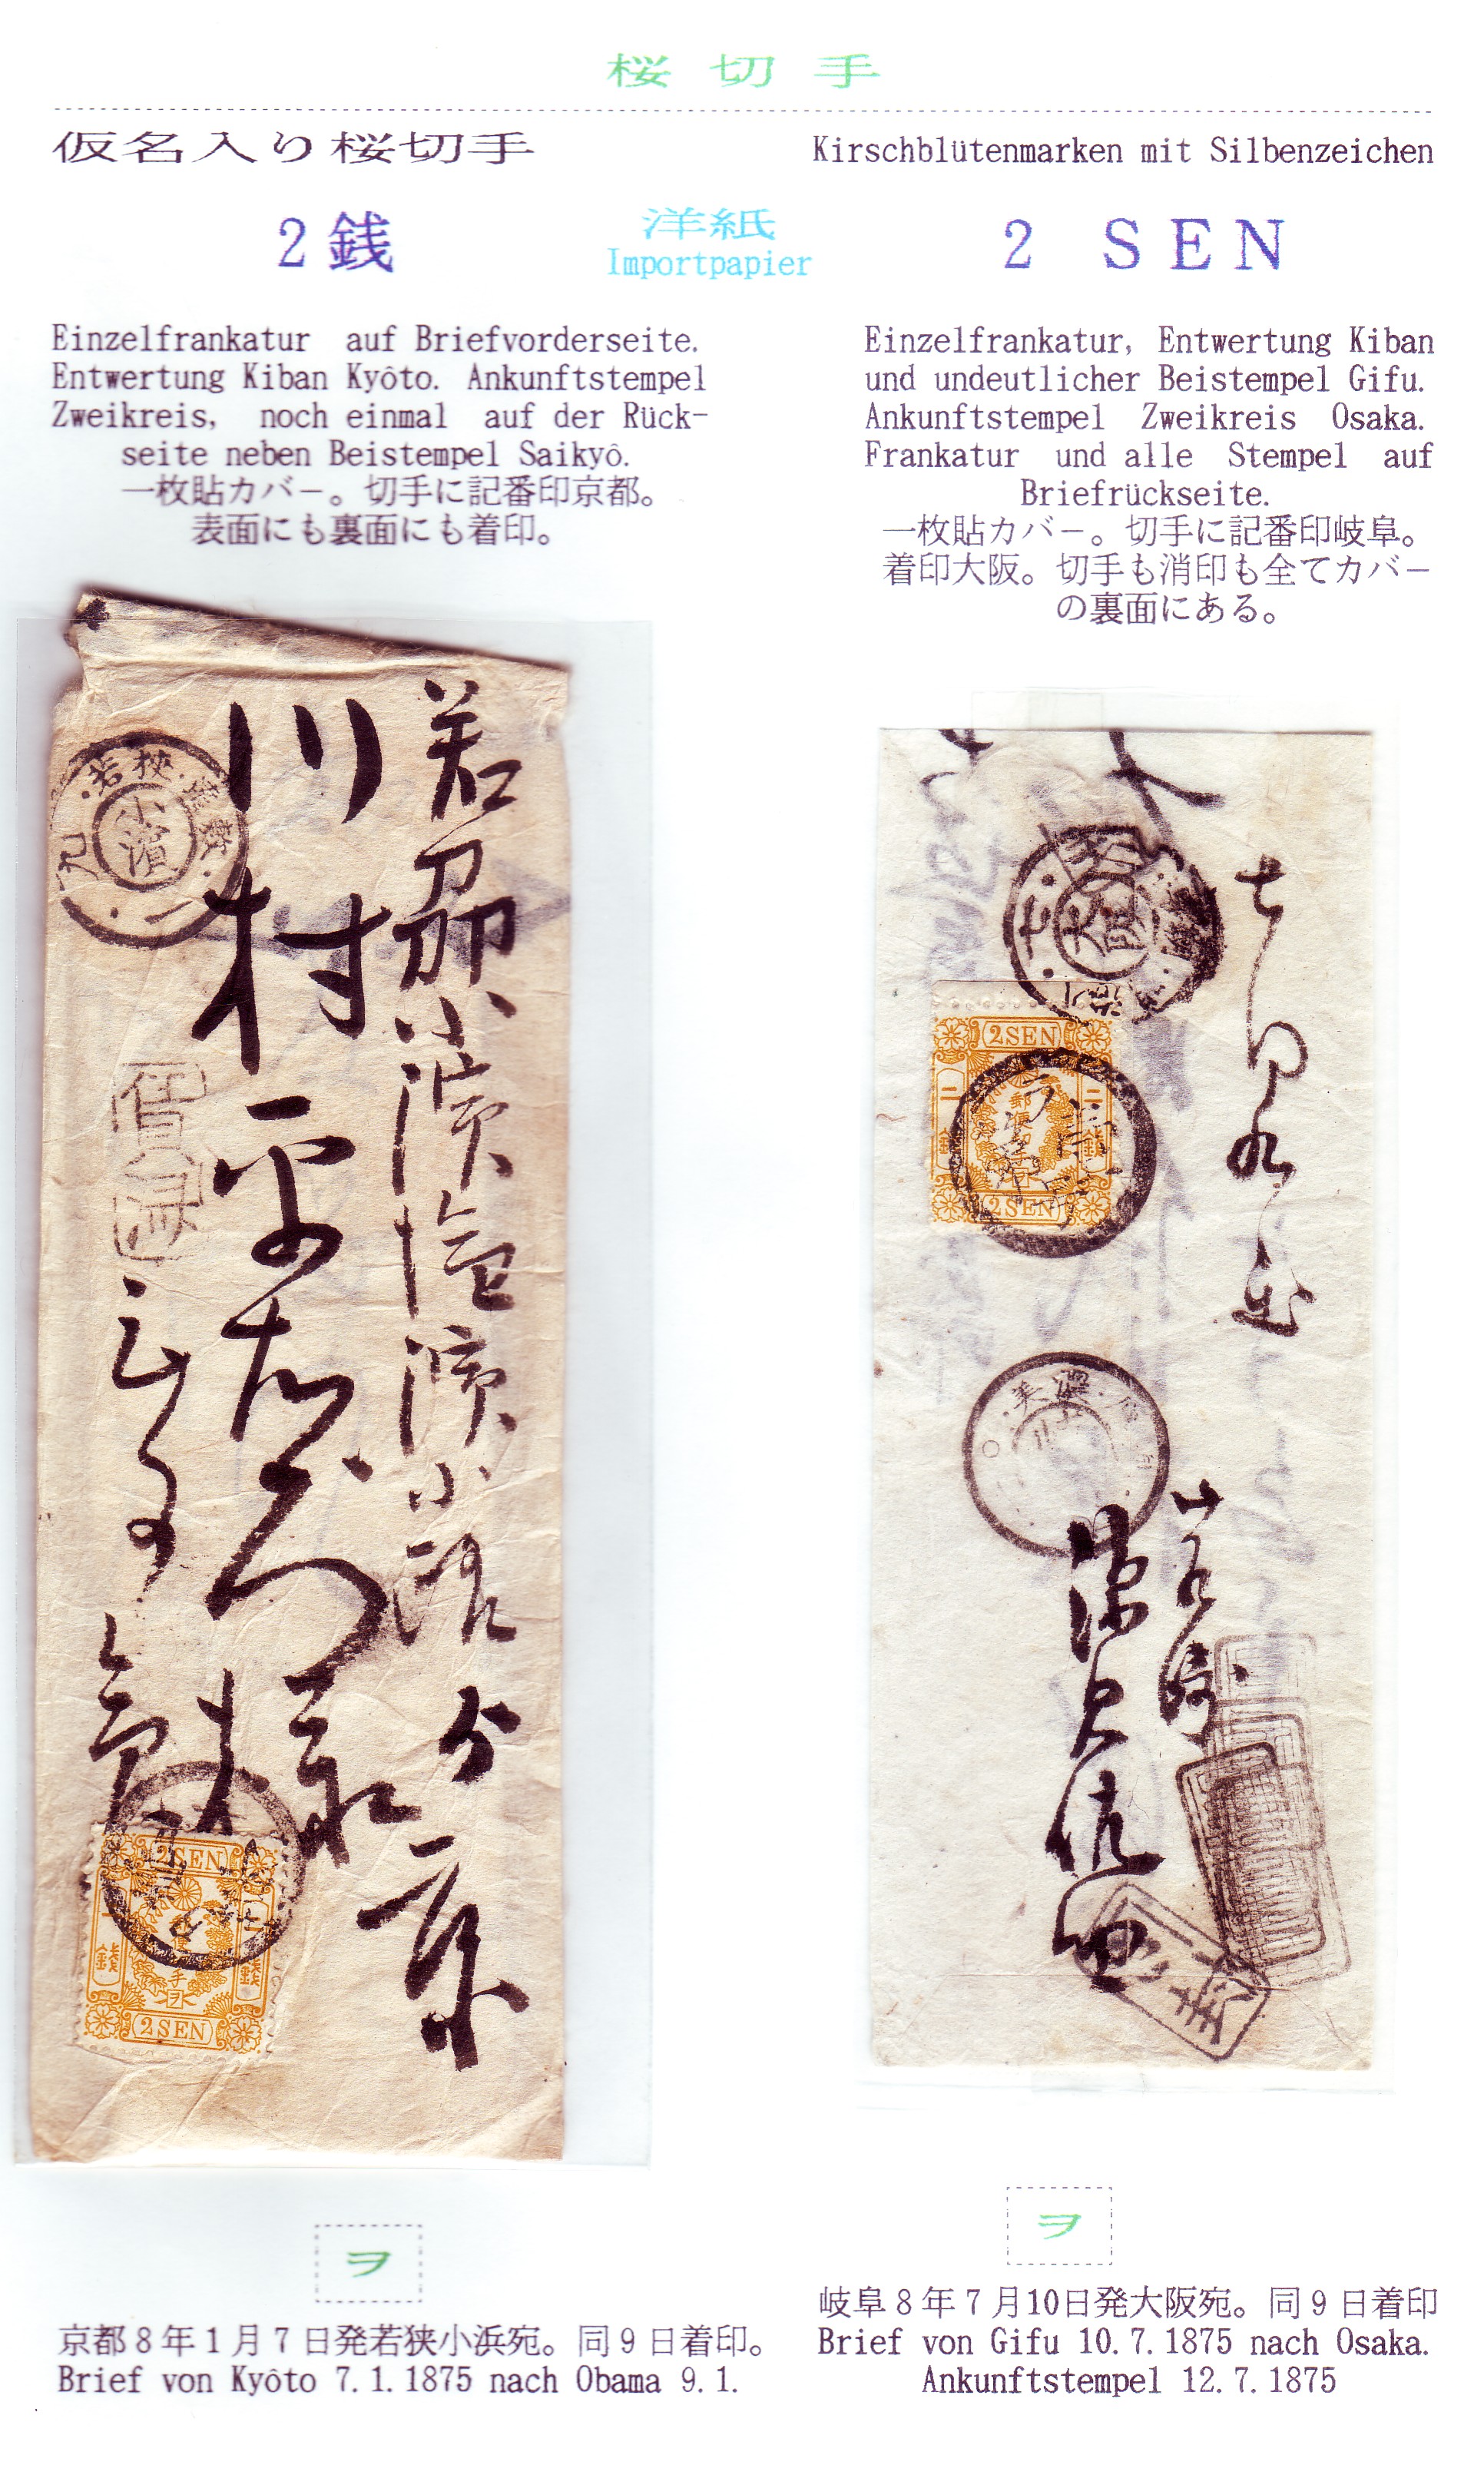 桜切手
仮名入り桜切手
Kirschblütenmarken mit Silbenzeichen
2銭
洋紙
Importpapier
2 SEN
Einzelfrankatur auf Briefvorderseite.
Entwertung Kiban Kyôto. Ankunftstempel
Zweikreis, noch einmal auf der Rück-
seite neben Beistempel Saikyô.
一枚貼カバー。切手に記番印京都。
表面にも裏面にも着印。
Einzelfrankatur, Entwertung Kiban
und undeutlicher Beistempel Gifu.
Ankunftstempel Zweikreis Osaka.
Frankatur und alle Stempel auf
Briefrückseite.
一枚貼カバー。切手に記番印岐阜。
着印大阪。切手も消印も全てカバー
の裏面にある。
若狭小濱塩濱小路
川村平右衛門様
若狭
小濱
2SEN
銭
銭
手
ヲ
2SEN
大阪
2SEN
二
二
郵
2SEN
美濃
ヲ
京都8年1月7日発若狭小浜宛。同9日着印。
Brief von Kyôto 7.1.1875 nach Obama 9.1.
ヲ
岐阜8年7月10日発大阪宛。同9日着印
Brief von Gifu 10.7.1875 nach Osaka.
Ankunftstempel 12.7.1875